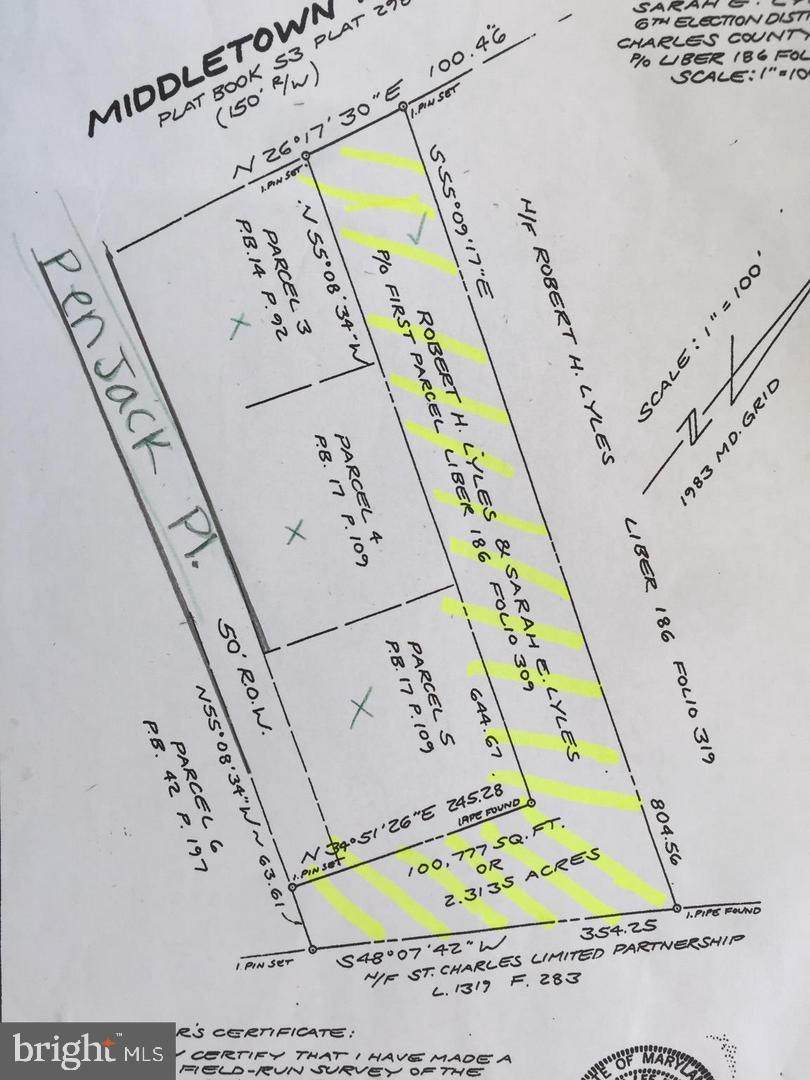 SARAH E.
6TH ELECTION DIST
CHARLES COUNTY
P/O LIBER 186 FOL
SCALE: 1"=10
MIDDLETOWN
PLAT BOOK 53 PLAT 29
(150' R/W)
N 26°17'30"E 100.46
I.PIN SET
I.PIN SET
S55°09'17"E
N55°08'34"W
PARCEL 3
P.B.14 P.92
P/O FIRST PARCEL LIBER 186 FOLIO 309
ROBERT H. LYLES & SARAH E. LYLES
N/F ROBERT H. LYLES
LIBER 186 FOLIO 319
SCALE: 1" = 100'
N
1983 MD. GRID
PenJack Pl.
PARCEL 4
P.B. 17 P.109
50' R.O.W.
PARCEL 5
P.B.17 P.109
644.67
N55°08'34"W ~ 63.61
PARCEL 6
P.B. 42 P.197
N 34°51'26"E 245.28
I.PIN SET
I.PIPE FOUND
100,777 SQ.FT.
OR
2.3135 ACRES
804.56
I.PIPE FOUND
I.PIN SET
S48°07'42"W 354.25
N/F ST. CHARLES LIMITED PARTNERSHIP
L. 1319 F. 283
R'S CERTIFICATE:
Y CERTIFY THAT I HAVE MADE A
FIELD-RUN SURVEY OF THE
E OF MARYL
bright MLS